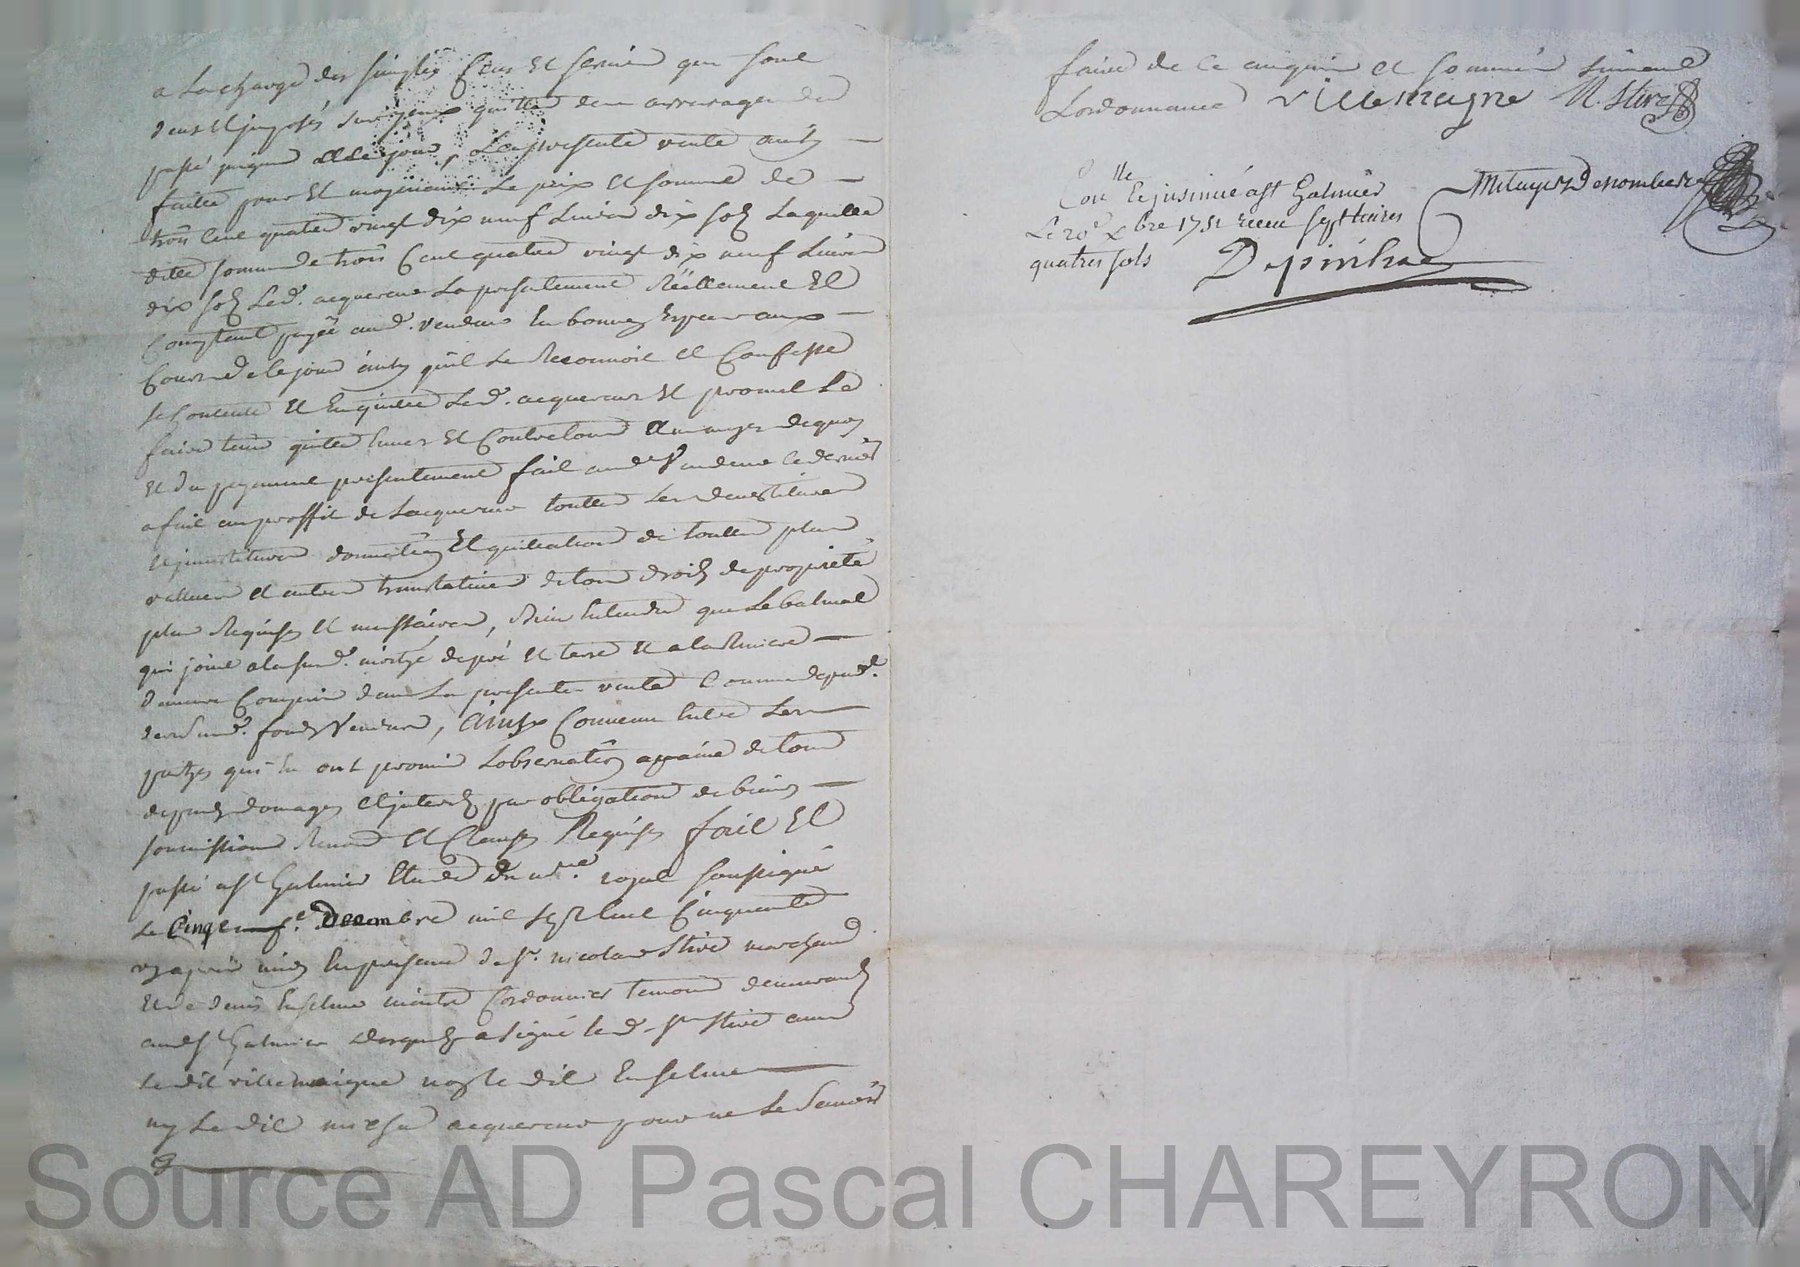 a La charge des simples Cens et servis qui sont
deus et jmposés sur yceux quitte den arrerages du
passé jusques a Ce jour, La presente vente ainsy
faitte pour et moyenant Le prix et somme de
trois Cent quatre vingt dix neuf Livres dix sols Laquelle
ditte somme de trois Cent quatre vingt dix neuf Livres
dix sols Led. acquereur La presentement Réellement et
Comptant payée aud. vendeur En bonnes Especes aux
Cours de Ce jour ainsy quil Le Reconnoit et Confesse
se Contente et En quitte Led. acquereur et promet Le
faire tenir quitte Envers et Contre tous Au moyen dequoy
et du payement presentement fait aud. Vendeur Ce dernier
a fait au proffit de Lacquereur touttes Les devestitures
et jnvestitures donnation et quittation de touttes plus
vallues et autres translatives de tous droits de propriété
plus Requises et necessaires, Bien Entendu que Le balmat
qui joint a la susd. moitié de pré et terre et a la Riviere
demeure Compris dans La presente vente Comme depend.
des susd. fonds Vendus, Ainsy Convenu Entre Les
partyes qui En ont promis Lobservation a paine de tous
depends domages et jnterests par obligation de biens
soumissions Renon et Clauses Requises fait et
passé a St Galmier Etude du nre. royal soussigné
Le Cinq Decembre mil sept Cent Cinquante
un apres midy En presence de Sr. nicolas Stive marchand
et de denis Enselme maitre Cordonnier temoins demeurants
aud St Galmier Desquels a signé Led. Sr Stive avec
Le dit villemaigne non Le dit Enselme
ny Le dit acquereur pour ne Le Savoir
faire de Ce enquis et sommés suivant
Lordonnance villemagne N. Stive
Conlle et jnsinué a St Galmier
Le 20e xbre 1751 Receu sept Livres
quatres sols Depinhac